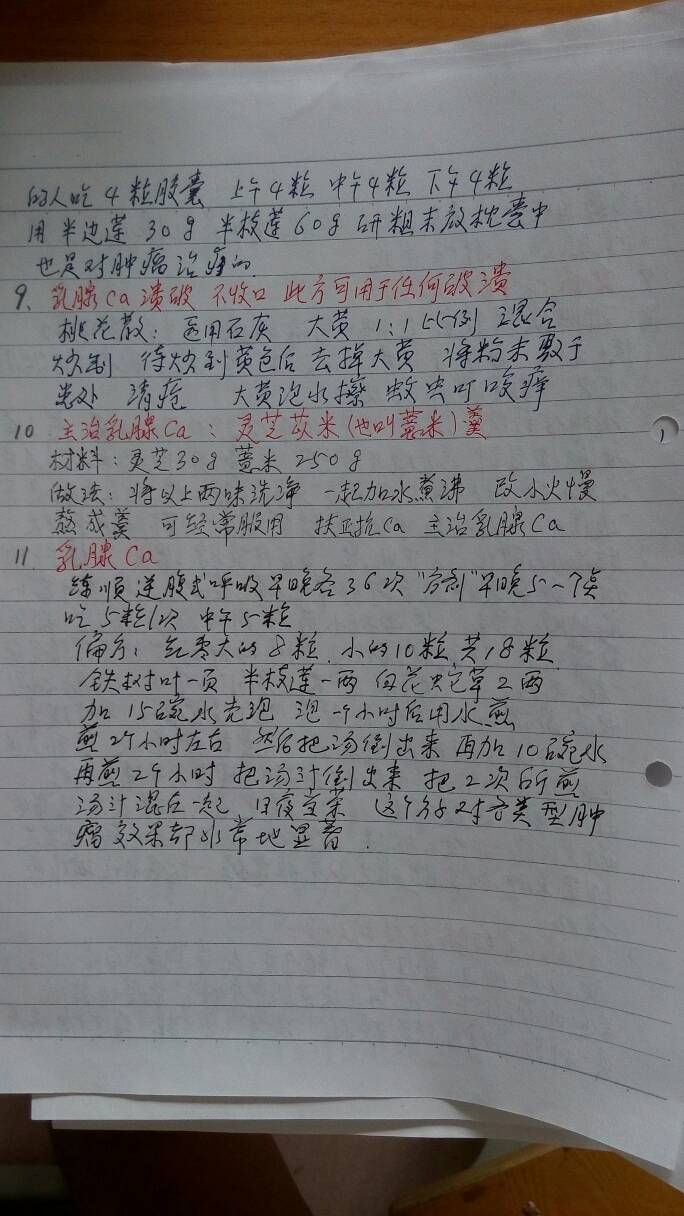 的人吃4粒胶囊 上午4粒 中午4粒 下午4粒
用半边莲30g 半枝莲60g 研粗末放枕囊中
也是对肿瘤治疗的
9、乳腺Ca溃破 不收口 此方可用于任何破溃
桃花散：医用石灰 大黄 1:1比例 混合
炒制 待炒到黄色后去掉大黄 将粉末敷于
患处 清疮 大黄泡水擦 蚊虫叮咬痒
10 主治乳腺Ca：灵芝苡米(也叫薏米)羹
材料：灵芝30g 薏米250g
做法：将以上两味洗净 一起加水煮沸 改小火慢
熬成羹 可经常服用 扶正抗Ca 主治乳腺Ca
11. 乳腺Ca
练顺逆腹式呼吸早晚各36次 早晚5
吃5粒/次 中午5粒
偏方：红枣大的8粒 小的10粒 共18粒
铁树叶一页 半枝莲一两 白花蛇草2两
加15碗水 泡一个小时后用水煎
煎2个小时左右 然后把汤倒出来 再加10碗水
再煎2个小时 把汤汁倒出来 把2次所煎
汤汁混在一起 日夜当茶 这个方子对各类型肿
瘤效果都非常地显著.
1